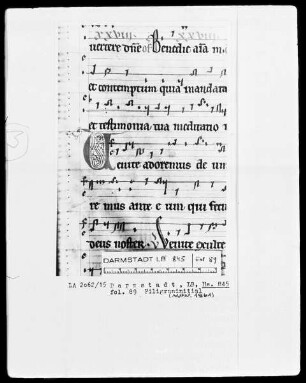 xxviij xxviij
uertere dñe of Benedic aīa m
et contemptum quia mandata
et testimonia tua meditatio
Venite adoremus de um
re mus ante e um qui feci
deus noster Venite exulte
DARMSTADT LB 845 fol 89
LA 2062/15 Darmstadt, LB, Hs. 845
fol. 89 Filigraninitial